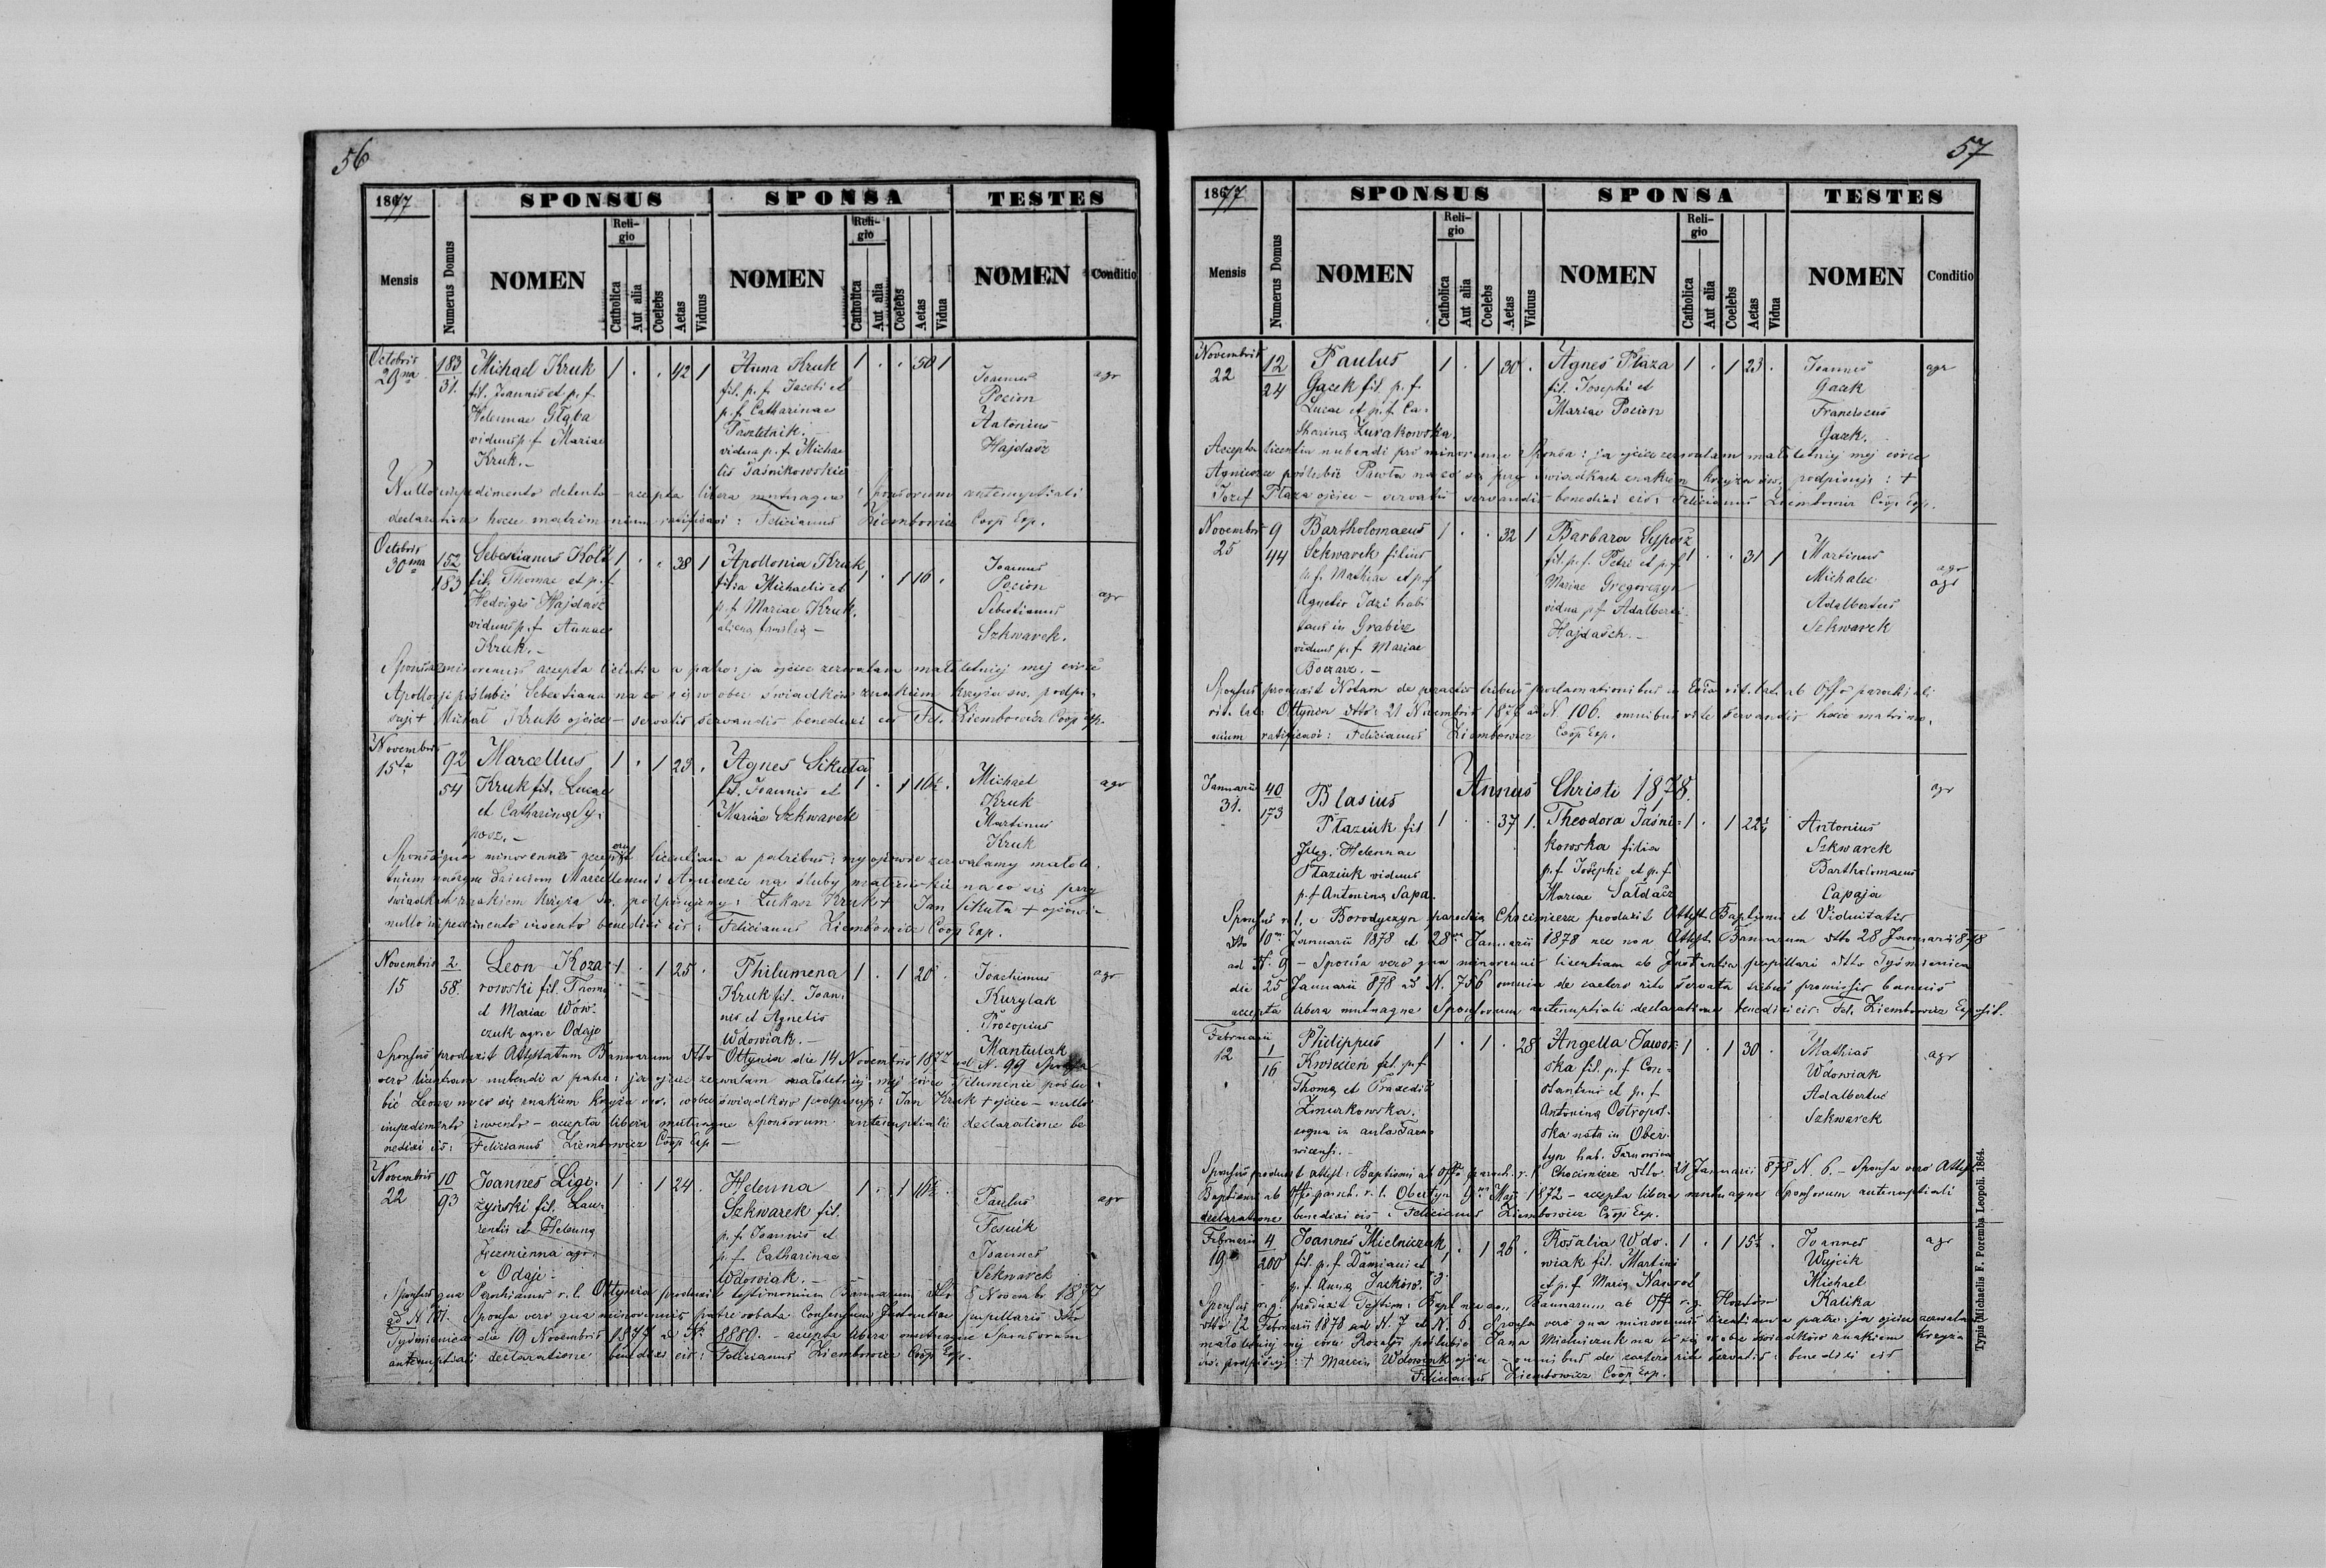 56
1877
SPONSUS
SPONSA
TESTES
Mensis
Numerus Domus
NOMEN
Religio
Catholica
Aut alia
Coelebs
Aetas
Viduus
NOMEN
Religio
Catholica
Aut alia
Coelebs
Aetas
Vidua
NOMEN
Conditio
Octobris 183 Michael Kruk 1 . . 42 1 Anna Kruk 1 . . 50 1 Joannes agr
29na 31. fil. Joannis et p.f. fil. p.f. Jacobi et Pocion
Helennae Głąba p.f. Catharinae Antonius
viduus p.f. Mariae Hajdasz
Kruk.- vidua p.f. Michae
lis Jaśnikowskie
Nullo impedimento detento - accepta libera mutuaque Sponsorum antenuptiali
declaratione hocce matrimonium ratificavi: Felicianus Ziembowicz Coop Exp.
Octobris 152 Sebestianus 1 . . 38 1 Apollonia Kruk 1 . 1 16 . Joannes agr
30ma 183 fil. Thomae et p.f. filia Michaelis et Pocion
Hedvigis Hajdasz p.f. Mariae Kruk. Sebestianus
viduus p.f. Annae Szkwarek.
Kruk.-
Sponsae minorennis accepta licentia a patre: ja ojciec zezwalam małoletniej mej córce
Apolloji poślubić Sebestiana na co się wobec świadków znakiem krzyża św. podpi-
suję + Michał Kruk ojciec - servatis servandis benedixi eis Fel. Ziembowicz Coop Exp.
Novembris 92 Marcellus 1 . 1 23 . Agnes Sikuta 1 . 1 16½ . Michael agr
15ta 54 Kruk fil. Lucae fil. Joannis et Kruk
et Catharina Sy- Mariae Szkwarek Martinus
posz.- Kruk
Sponsi qua minorennes licentiam a patribus: my ojcowie zezwalamy małole-
tniem naszym dzieciom Marcellemu i Agnieszce na śluby małżeńskie na co się przy
świadkach znakiem krzyża św. podpisujemy: Łukasz Kruk + Jan Sikuta + ojcowie
nullo impedimento invento benedixi eis: Felicianus Ziembowicz Coop Exp.
Novembris 2 Leon Koza- 1 . 1 25 . Philumena 1 . 1 20 . Joachimus agr
15 58. rowski fil. Thoma Kruk fil. Joan- Kurylak
et Mariae Wów- nis et Agnetis Procopius
czuk agric Odaje Wdowiak.- Mantulak
Sponsus produxit Attestatum Bannorum dtto Ottynia die 14 Novembris 1877 ad N. 99 Sponsa
vero licentiam nubendi a patre: ja ojciec zezwalam małoletniej mej córce Filumenie poślu-
bić Leona na co się znakiem krzyża św. wobec świadków podpisuję: Jan Kruk + ojciec - nullo
impedimento invento - accepta libera mutuaque Sponsorum antenuptiali declaratione be
nedixi eis: Felicianus Ziembowicz Coop Exp -
Novembris 10 Joannes Ligi- 1 . 1 24 . Helenna 1 . 1 16½ . Paulus agr
22 93 żyński fil. Lau- Szkwarek fil. Fesuik
rentii et Helenna p.f. Joannis et Joannes
Jęczmienna agr. p.f. Catharinae Szkwarek
e Odaje.- Wdowiak.-
Sponsus qua Parochianus r. l. Ottynia produxit testimonium Bannorum dtto 8 Novembr 1877
ad N 101. Sponsa vero qua minorennis patre orbata Consensum Instantiae pupillaris dtto
Tyśmienica die 19 Novembris 1877 ad N: 8880. - accepta libera mutuaque Sponsorum
antenuptiali declaratione benedixi eis: Felicianus Ziembowicz Coop Exp.
57
1877
SPONSUS
SPONSA
TESTES
Mensis
Numerus Domus
NOMEN
Religio
Catholica
Aut alia
Coelebs
Aetas
Viduus
NOMEN
Religio
Catholica
Aut alia
Coelebs
Aetas
Vidua
NOMEN
Conditio
Novembris 12 Paulus 1 . 1 30 . Agnes Płaza 1 . 1 23 . Joannes agr
22 24 Gacek fil. p.f. fil. Josephi et Gacek
Lucae et p.f. Ca- Mariae Pocion Franciscus
tharina Żurakowska. Gacek.
Accepta licentia nubendi pro minorenne Sponsa: ja ojciec zezwalam małoletniej mej córce
Agnieszce poślubić Pawła na co się przy świadkach znakiem krzyża św. podpisuję: +
Józef Płaza ojciec - servatis servandis benedixi eis: Felicianus Ziembowicz Coop Exp.
Novembris 9 Bartholomaeus 1 . . 32 1 Barbara Syposz 1 . . 31 1 Martinus agr
25 44 Szkwarek filius fil. p.f. Petri et p.f. Michalec agr
p.f. Mathiae et p.f. Mariae Gregorczyn Adalbertus
Agnetis Idzi habi vidua p.f. Adalberti Szkwarek
tans in Grabicz Hajdasch.-
viduus p.f. Mariae
Boczarz.-
Sponsus produxit Notam de peractis tribus proclamationibus in Ecclia rit. lat. ab Offo parochiali
rit. lat. Ottynia dtto: 21 Novembris 1877 ad N 106. omnibus rite servandis hocce matrimo-
nium ratificavi: Felicianus Ziembowicz Coop Exp.
Annus Christi 1878.
Januarii 40 Blasius 1 . . 37 1. Theodora Jaśni- 1 . 1 22½ Antonius agr
31. 173 Płaziuk fil kowska filia Szkwarek
Illeg. Helennae p.f. Josephi et p.f. Bartholomaeus
Płaziuk viduus Mariae Sałdacz Capaja
p.f. Antonina Sapa.
Sponsus r. l. e Borodyczyn parochia Chocimierz produxit Attest. Baptismi et Viduitatis
dtto 10m Januarii 1878 et 28va Januarii 1878 nec non Attest. Bannorum dtto 28 Januarii 878
ad N. 9 - Sponsa vero qua minorennis licentiam ab Instantia pupillari dtto Tyśmienica
die 25 Januarii 878 ad N. 756 omnia de caetero rite servata tribus promissis bannis
accepta libera mutuaque Sponsorum antenuptiali declaratione benedixi eis: Fel. Ziembowicz Exposit.
Februarii 1 Philippus 1 . 1 . 28 Angella Jawor- 1 . 1 30 . Mathias agr
12 16 Kwiecień fil. p.f. ska fil. p.f. Con- Wdowiak
Thoma et Praxedis stantini et p.f. Adalbertus
Żmurkowska. Antonina Ostropol- Szkwarek
in aula Tarno ska nata in Ober-
wicensi.- tyn hab. Tarnowica
Sponsus produxit attest. Baptismi ab Offo paroch. r. l. Chocimierz dtto 21 Januarii 878 N. 6. - Sponsa vero Attest
Baptismi ab Offo paroch. r. l. Obertyn 9na Maji 1872 - accepta libera mutuaque Sponsorum antenuptiali
declaratione benedixi eis. Felicianus Ziembowicz Coop Exp.
Februarii 4 Joannes Mielniczuk 1 . 1 26 . Rosalia Wdo- 1 . 1 15½ . Joannes agr
19 200 fil. p.f. Damiani et wiak fil. Martini Wujcik
p.f. Anna Jacków. r.g. et p.f. Maria Nawrot Michael
Kalika
Sponsus r. g. produxit Testim: Bapt nec non Bannorum ab Off r. g.
dtto 12 Februarii 1878 ad N. 7 et N. 6. Sponsa vero qua minorennis licentiam a patre: ja ojciec zezwalam
małoletniej mej córce Rozalii poślubić Jana Mielniczuk na co się wobec świadków znakiem krzyża
św. podpisuję: + Marcin Wdowiak ojciec - omnibus de caetero rite servatis benedixi eis
Felicianus Ziembowicz Coop Exp.
Typis Michaelis F. Poremba Leopoli. 1864.